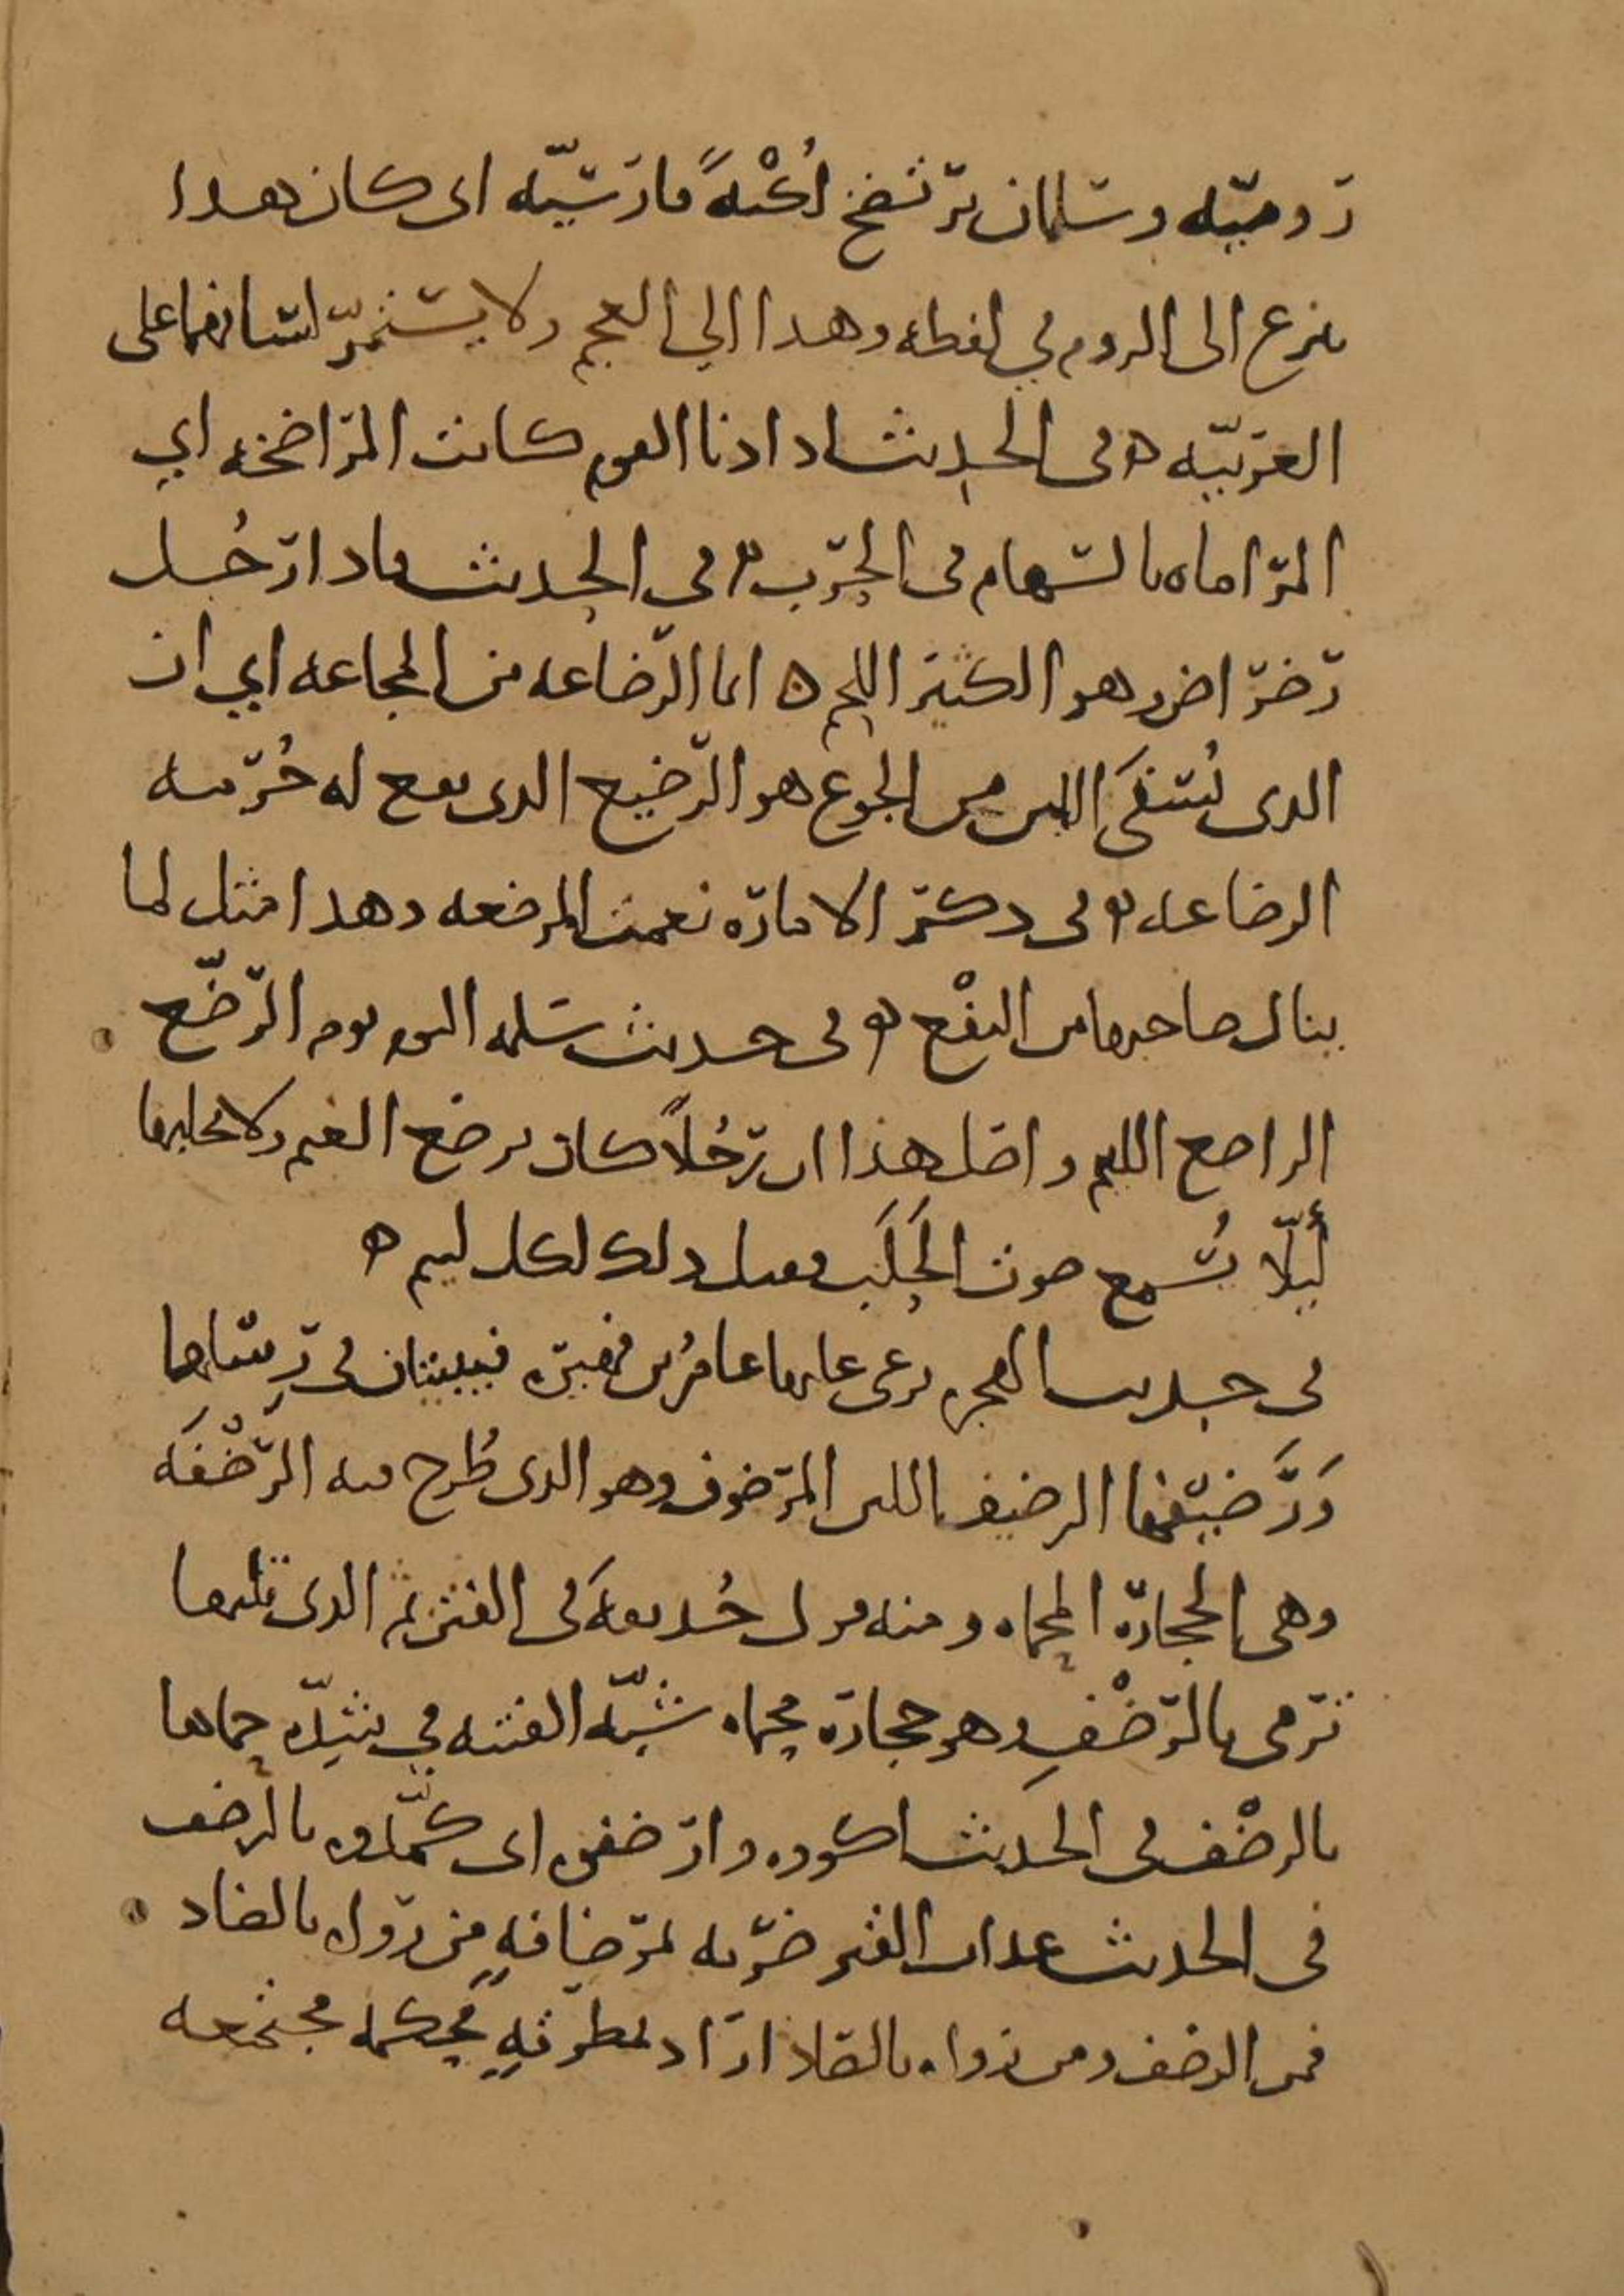 رومية وسلمان يرتضخ لُكْنةً فارسية اى كان هذا
ينزع الى الروم في لفظه وهذا الي العجم ولا يستمرّ لسانهما على
العربيّة ه فى الحديث اذا دنا القوم كانت المراضخة اي
المراماة بالسهام فى الحرب ه فى الحديث فاذا رَجُل
رضراض وهو الكثير اللحم ه انما الرضاعة من المجاعة اي ان
الذى يُسْقَى اللبن من الجوع هو الرّضيع الذى يقع له حُرمة
الرضاعة ه فى ذكر الامارة نعمت المرضعة وهذا مثل لما
ينال صاحبها من النفْع ه فى حديث سلمه اليوم يوم الرّضّع
الراضع اللئيم واصل هذا ان رَجُلاً كان يرضع الغنم ولا يحلبها
لِئلّا يُسْمع صوت الحَلَب فقيل ذلك لكل لئيم ه
فى حديث الهجرة يرعى عليها عامرُ بن فهيرة فيبيتان فى رِسْلها
وَرَضيفها الرضيف اللبن المرضوف وهو الذى طُرح فيه الرّضْفَة
وهى الحجارة المحماة ومنه قول حُذيفةَ فى الفتن ثم الذى تليها
ترمى بالرّضْفِ وهو حجارة محماة شبّه الفتنة في شدّة حماها
بالرضْف فى الحديث اكووه وارضفوه اى كمّدوه بالرضف
فى الحديث عذاب القبر ضَرْبه بمرْضافةٍ من رَوَاه بالضاد
فمن الرضف ومن رواه بالصاد اراد بمطرقةٍ محكمة مجتمعة